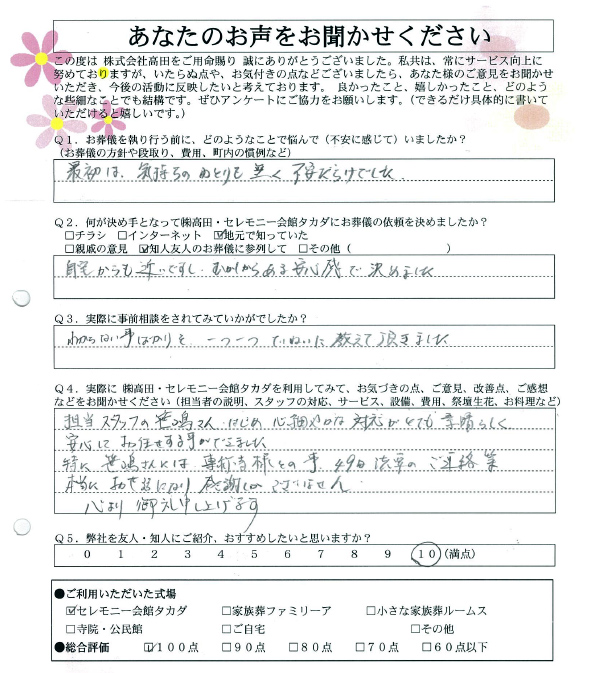 あなたのお声をお聞かせください
この度は 株式会社高田をご用命賜り 誠にありがとうございました。私共は、常にサービス向上に
努めておりますが、いたらぬ点や、お気付きの点などございましたら、あなた様のご意見をお聞かせ
いただき、今後の活動に反映したいと考えております。 良かったこと、嬉しかったこと、どのよう
な些細なことでも結構です。ぜひアンケートにご協力をお願いします。(できるだけ具体的に書いて
いただけると嬉しいです。)
Q1．お葬儀を執り行う前に、どのようなことで悩んで（不安に感じて）いましたか？
（お葬儀の方針や段取り、費用、町内の慣例など）
最初は、気持ちのゆとりも無く 不安だらけでした
Q2．何が決め手となって㈱高田・セレモニー会館タカダにお葬儀の依頼を決めましたか？
□チラシ □インターネット ☑地元で知っていた
□親戚の意見 ☑知人友人のお葬儀に参列して □その他（ ）
自宅からも近いですし、むかしからある安心感で決めました
Q3．実際に事前相談をされてみていかがでしたか？
わからない事ばかりを 一つ一つ ていねいに教えて頂きました
Q4．実際に ㈱高田・セレモニー会館タカダを利用してみて、お気づきの点、ご意見、改善点、ご感想
などをお聞かせください（担当者の説明、スタッフの対応、サービス、設備、費用、祭壇生花、お料理など）
担当スタッフの笹嶋さん はじめ 心細やかな対応がとても素晴らしく
安心して お任せする事ができました
特に 笹嶋さんには 専行寺様との事、49日法要のご連絡等
本当に お世話になり 感謝しか ございません
心より 御礼申し上げます
Q5．弊社を友人・知人にご紹介、おすすめしたいと思いますか？
0 1 2 3 4 5 6 7 8 9 10（満点）
●ご利用いただいた式場
☑セレモニー会館タカダ □家族葬ファミリーア □小さな家族葬ルームス
□寺院・公民館 □ご自宅 □その他
●総合評価 ☑100点 □90点 □80点 □70点 □60点以下